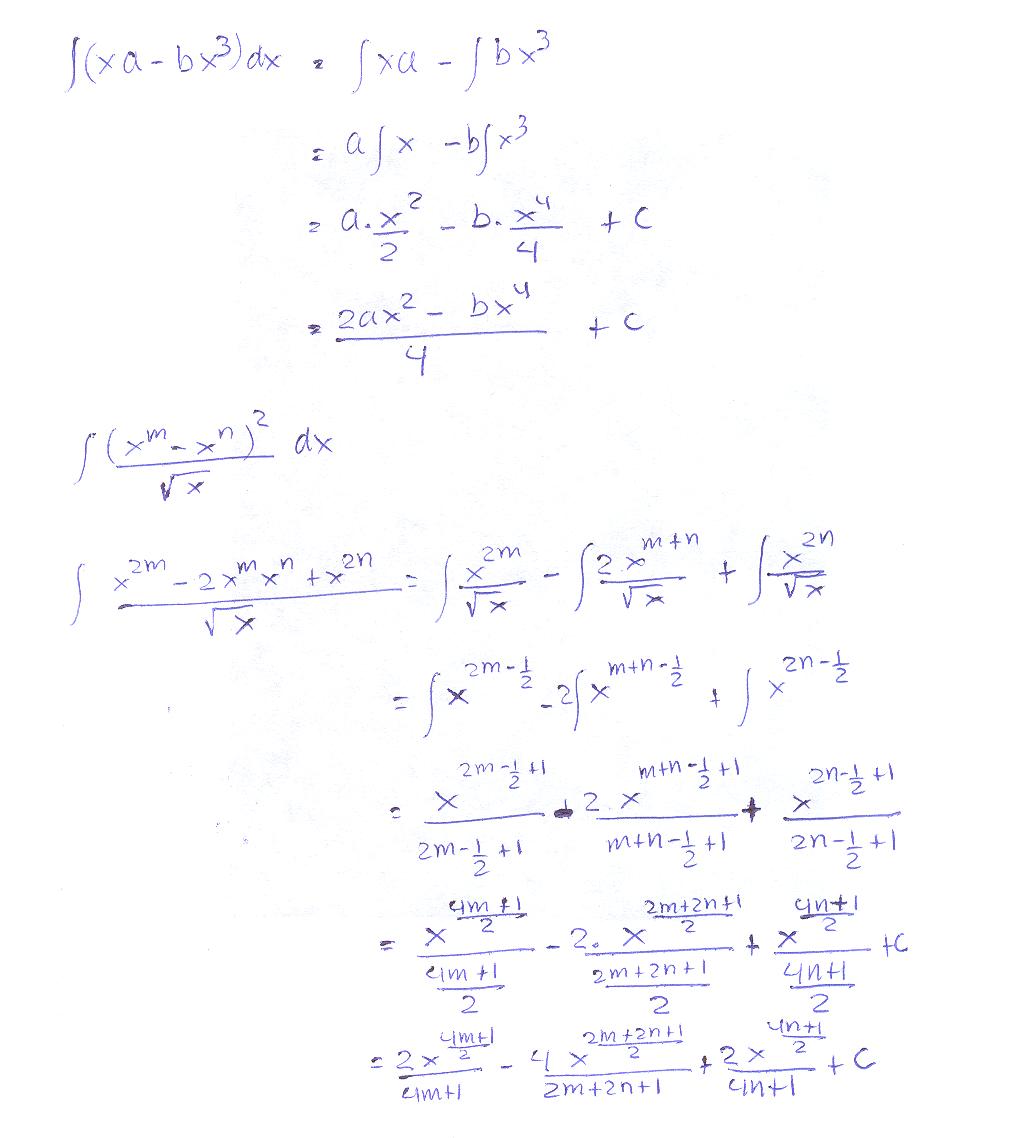 ∫(xa - bx³)dx = ∫xa - ∫bx³
= a∫x - b∫x³
= a.x²/2 - b.x⁴/4 + C
= (2ax² - bx⁴)/4 + C
∫(x^m - x^n)²/√x dx
∫(x^(2m) - 2x^m x^n + x^(2n))/√x = ∫x^(2m)/√x - ∫2x^(m+n)/√x + ∫x^(2n)/√x
= ∫x^(2m-1/2) - 2∫x^(m+n-1/2) + ∫x^(2n-1/2)
= x^(2m-1/2+1)/(2m-1/2+1) - 2.x^(m+n-1/2+1)/(m+n-1/2+1) + x^(2n-1/2+1)/(2n-1/2+1)
= x^((4m+1)/2)/((4m+1)/2) - 2.x^((2m+2n+1)/2)/((2m+2n+1)/2) + x^((4n+1)/2)/((4n+1)/2) + C
= 2x^((4m+1)/2)/(4m+1) - 4x^((2m+2n+1)/2)/(2m+2n+1) + 2x^((4n+1)/2)/(4n+1) + C